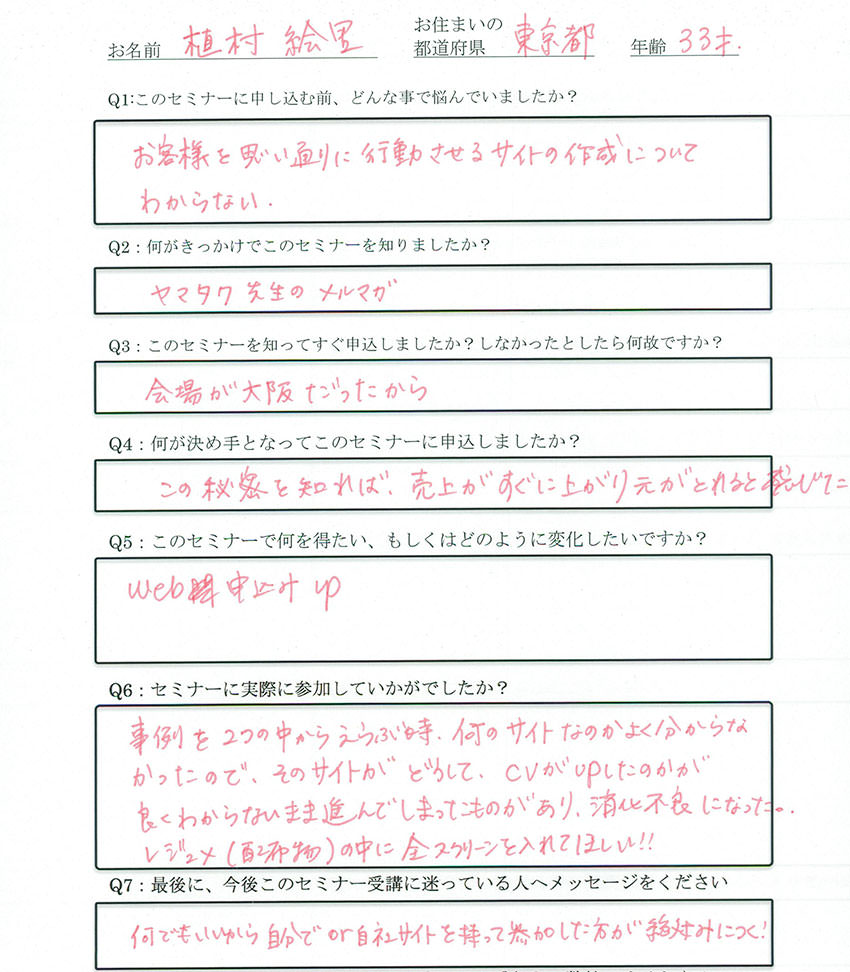 お名前 植村 絵里 お住まいの都道府県 東京都 年齢 33才.
Q1:このセミナーに申し込む前、どんな事で悩んでいましたか？
お客様を思い通りに行動させるサイトの作成について
わからない.
Q2：何がきっかけでこのセミナーを知りましたか？
ヤマタク先生のメルマガ
Q3：このセミナーを知ってすぐ申込しましたか？しなかったとしたら何故ですか？
会場が大阪だったから
Q4：何が決め手となってこのセミナーに申込しましたか？
この秘密を知れば、売上がすぐに上がり元がとれると
Q5：このセミナーで何を得たい、もしくはどのように変化したいですか？
web申込みup
Q6：セミナーに実際に参加していかがでしたか？
事例を2つの中からえらぶ時、何のサイトなのかよく分からな
かったので、そのサイトがどうして、CVがupしたのかが
良くわからないまま進んでしまったものがあり、消化不良になった。
レジュメ(配布物)の中に全スクリーンを入れてほしい!!
Q7：最後に、今後このセミナー受講に迷っている人へメッセージをください
何でもいいから自分でor自社サイトを持って参加した方が絶対みにつく!